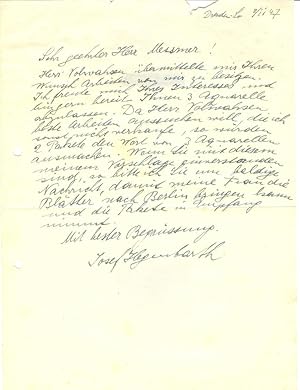 Dresden 7/II 47
Sehr geehrter Herr Messmer!
Herr Volwahsen übermittelte mir Ihren
Wunsch Arbeiten von mir zu besitzen.
Ich freute mich Ihres Interesses und
bin gern bereit Ihnen 3 Aquarelle
abzulassen. Da Herr Volwahsen
beste Arbeiten aussuchen will, die ich
sonst nicht verkaufe, so würden
2 Pakete den Wert von 3 Aquarellen
ausmachen. Wenn Sie mit diesem
meinem Vorschlage einverstanden
sind, so bitte ich Sie um baldige
Nachricht, damit meine Frau die
Blätter nach Berlin bringen kann
und die Pakete in Empfang
nimmt.
Mit bester Begrüssung.
Josef Hegenbarth